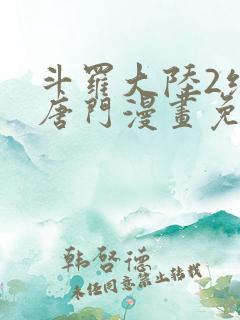 斗羅大陸2
唐門漫畫免
韩啓德
未经同意禁止转载